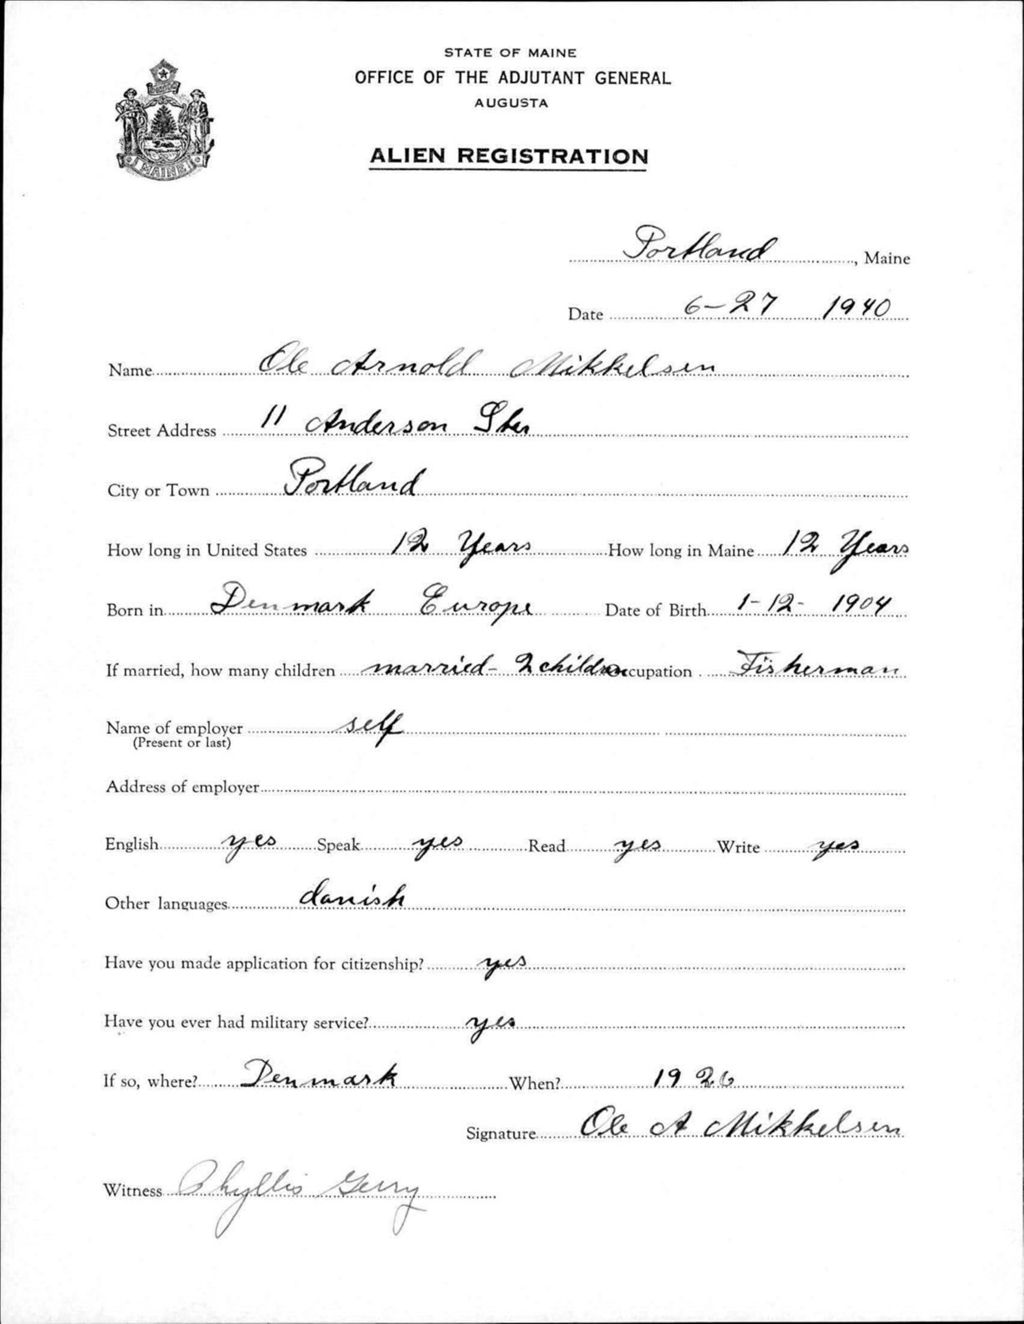 STATE OF MAINE
OFFICE OF THE ADJUTANT GENERAL
AUGUSTA
ALIEN REGISTRATION
MAINE
Portland, Maine
Date 6-27 1940
Name Ole Arnold Mikkelsen
Street Address 11 Anderson
City or Town Portland
How long in United States 12 Years How long in Maine 12 Years
Born in Denmark Europe Date of Birth 1-12-1904
If married, how many children married - 2 children cupation Fisherman
Name of employer self
(Present or last)
Address of employer
English yes Speak yes Read yes Write yes
Other languages danish
Have you made application for citizenship? yes
Have you ever had military service? yes
If so, where? Denmark When? 1926
Signature Ole A Mikkelsen
Witness Phyllis Gerry